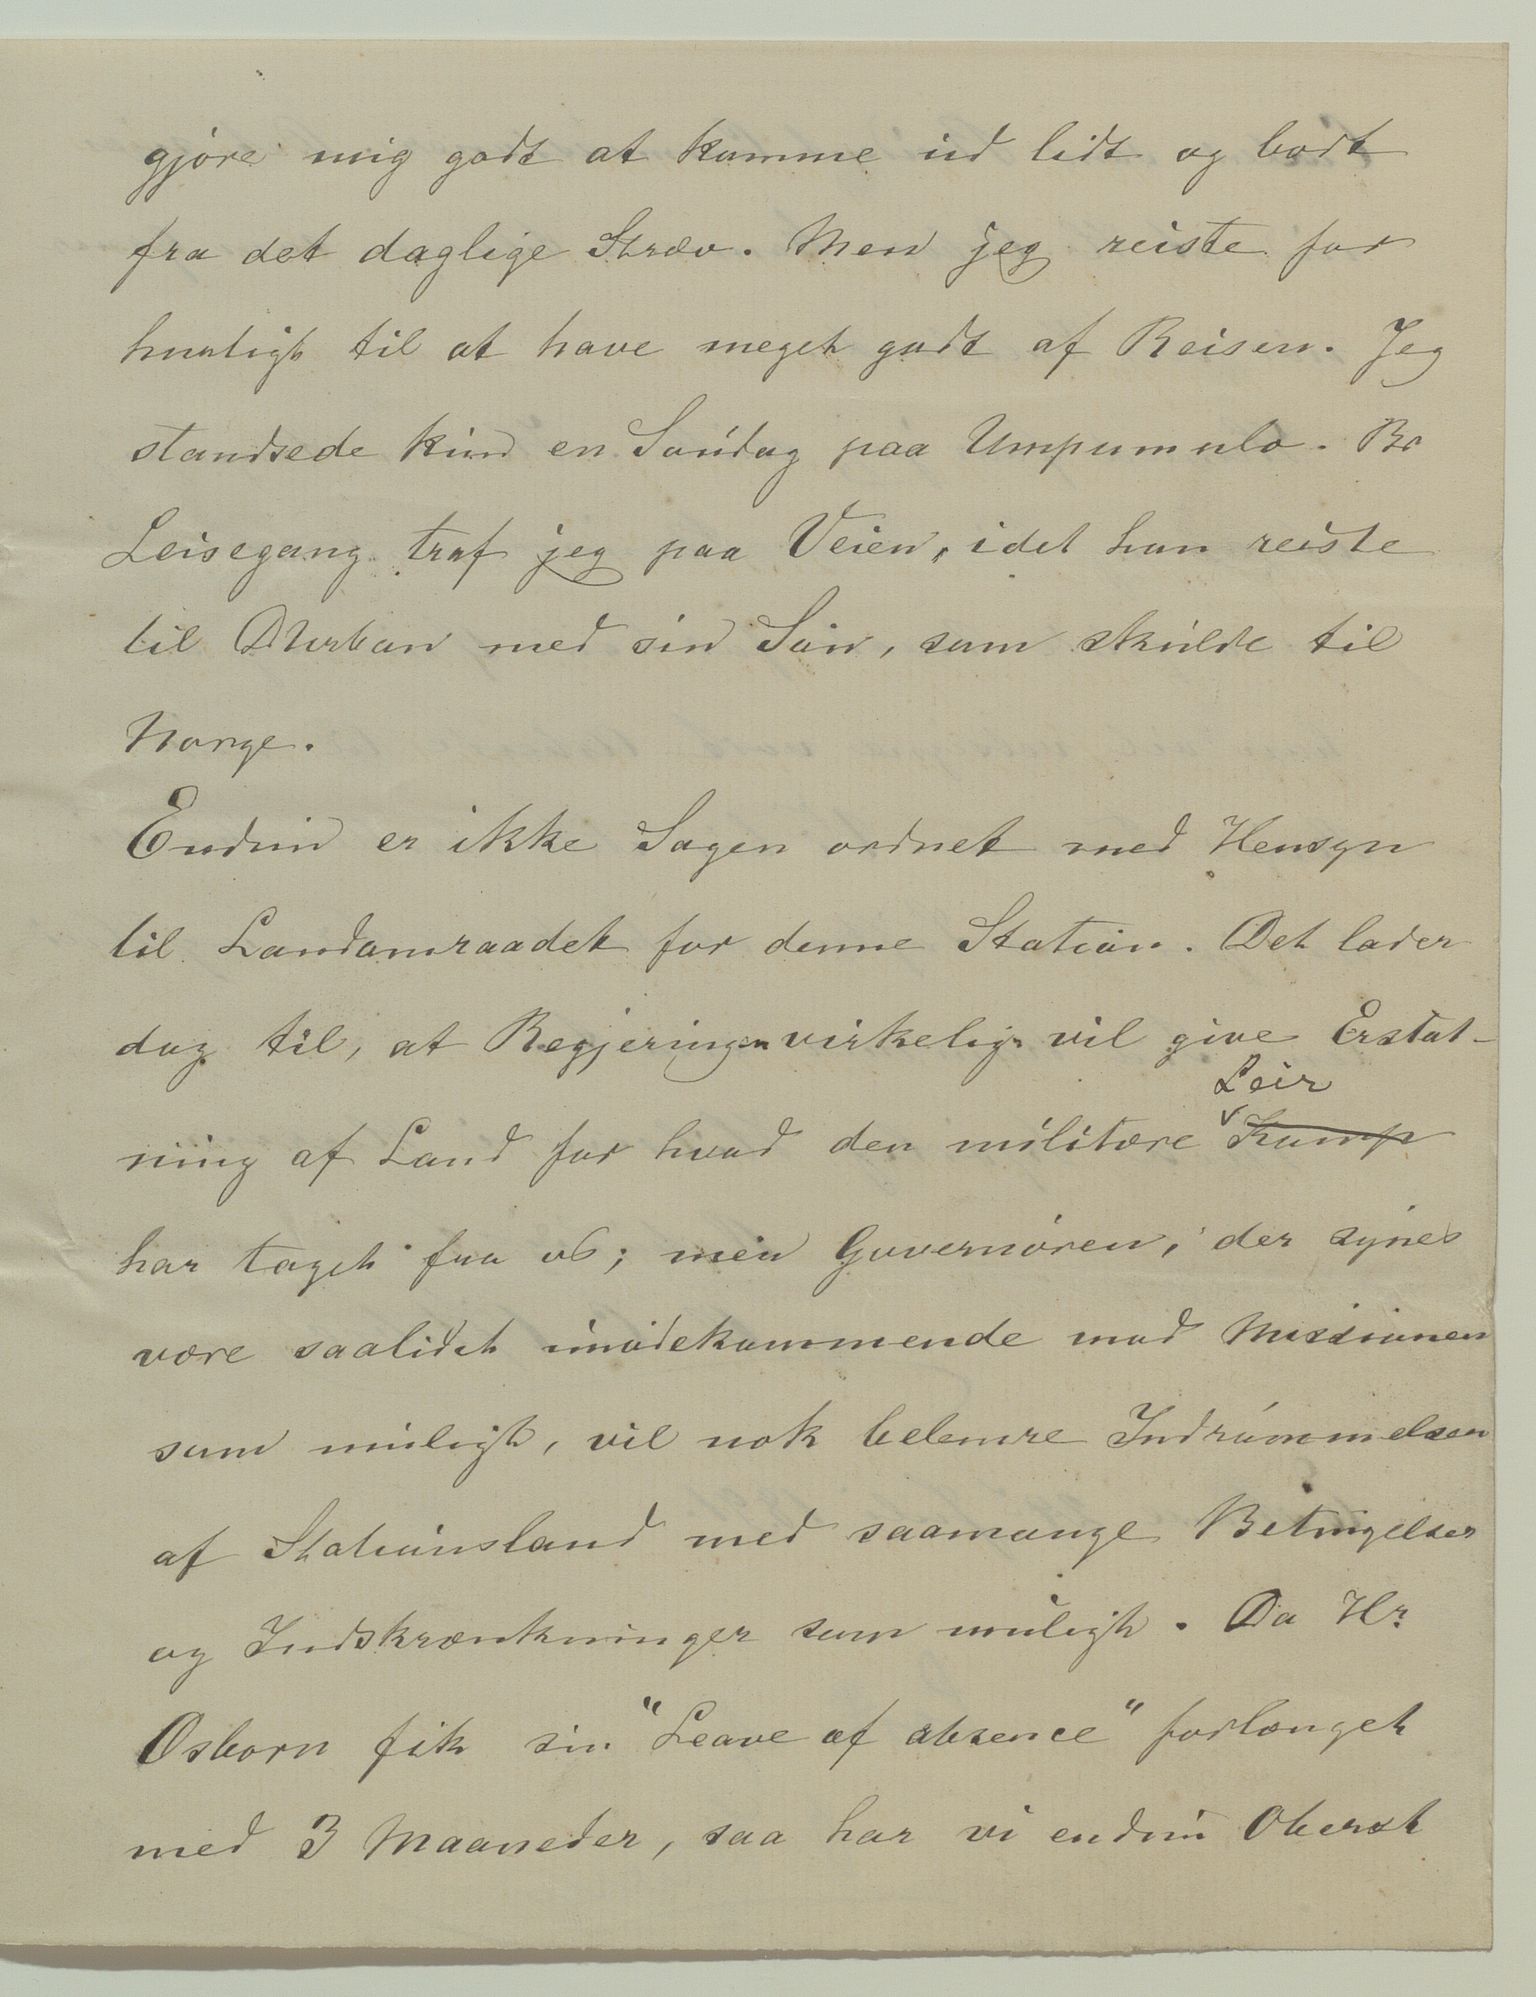 gjøre mig godt at komme ud lidt og bort
fra det daglige Stræv. Men jeg reiste for
hurtigt til at have meget godt af Reisen. Jeg
standsede kun en Søndag paa Umpumulo. Br
Leisegang traf jeg paa Veien, idet han reiste
til DUrban med sin Søn, som skulde til
Norge.
Endnu er ikke Sagen ordnet med Hensyn
til Landomraadet for denne Station. Det lader
dog til, at Regjeringen virkelig vil give Erstat-
Leir
ning af Land for hvad den militære Kamp
har taget fra os; men Guvernøren, der synes
være saalidet imødekommende mod Missionen
som muligt, vil nok belemre Indrømmelsen
af Stationsland med saamange Betingelser
og Indskrænkninger som muligt. Da Hr.
Osborn fik sin "Leave of absence" forlænget
med 3 Maaneder, saa har vi endnu Oberst